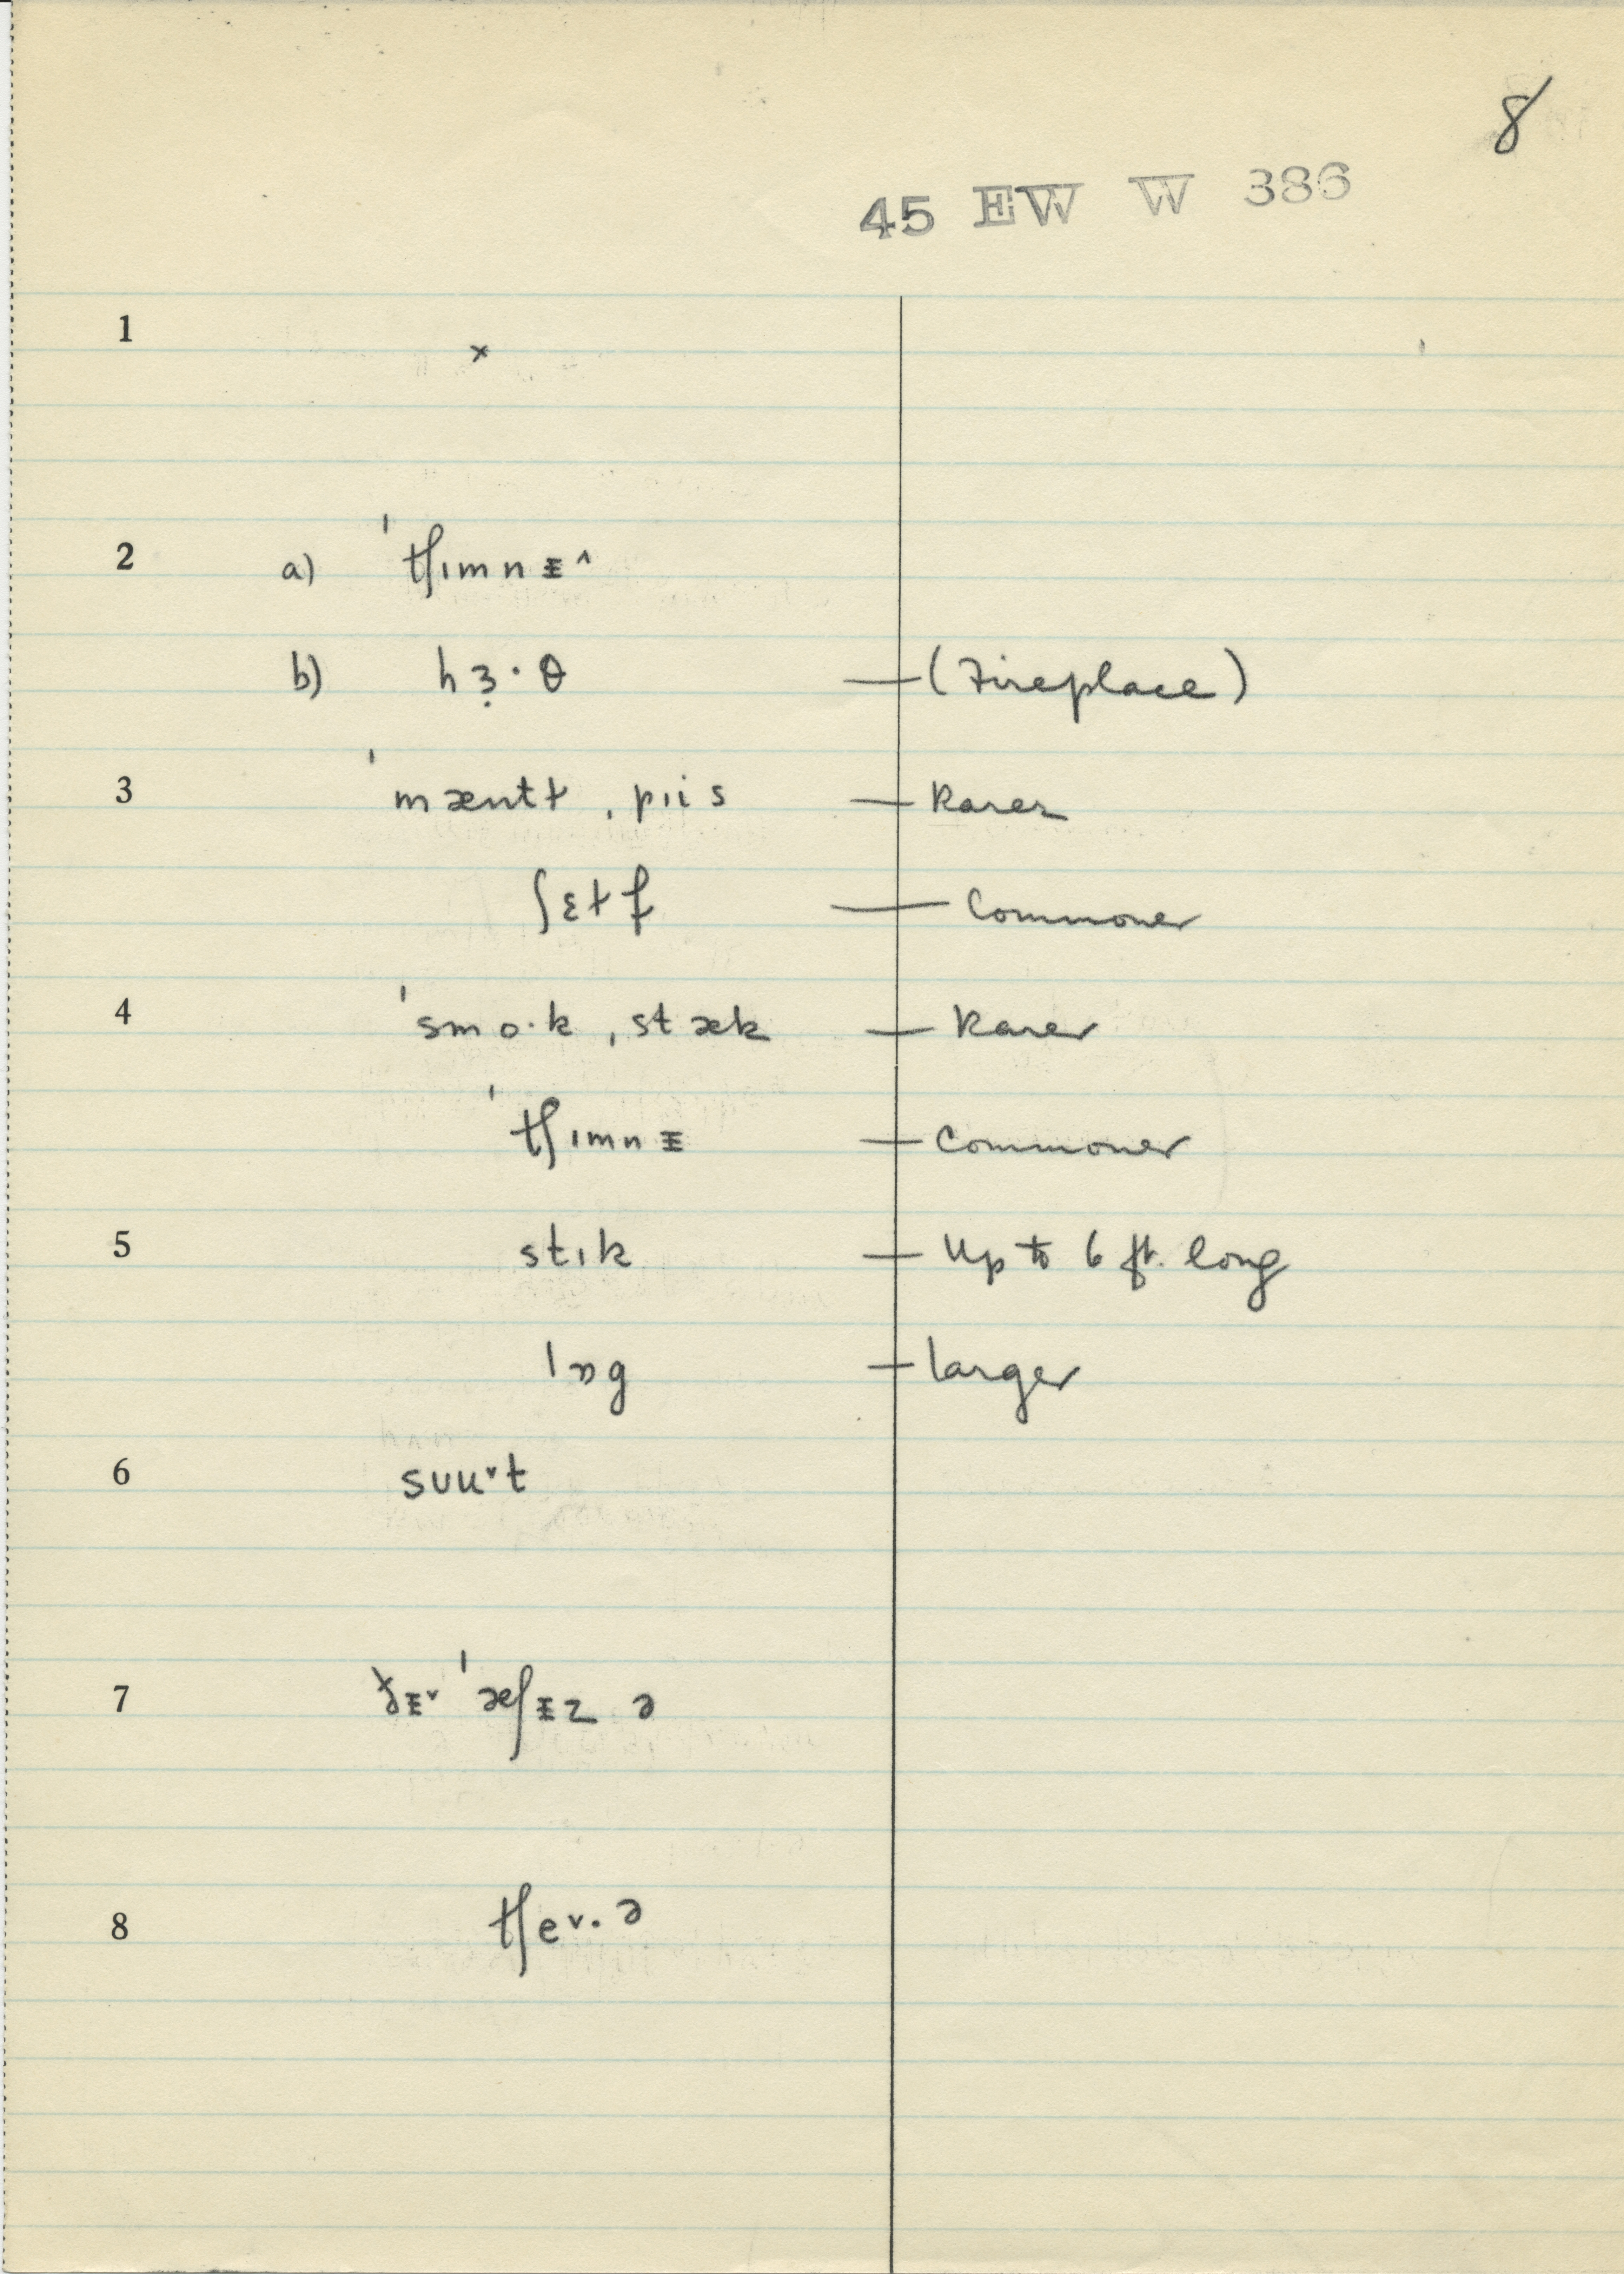 8
45 EW W 386
1 x
2 a) ˈtʃɪmnɪ̵^
b) hɜ̣·θ — (Fireplace)
3 ˈmæntɫ ˌpiis — Rarer
ʃɛɫf — Commoner
4 ˈsmo·k ˌstæk — Rarer
ˈtʃɪmnɪ̵ — Commoner
5 stɪk — Up to 6 ft. long
lɒg — larger
6 sʊuᵛt
7 ðɪ̵ᵛ ˈæʃɪ̵z ə
8 tʃeᵛ·ə